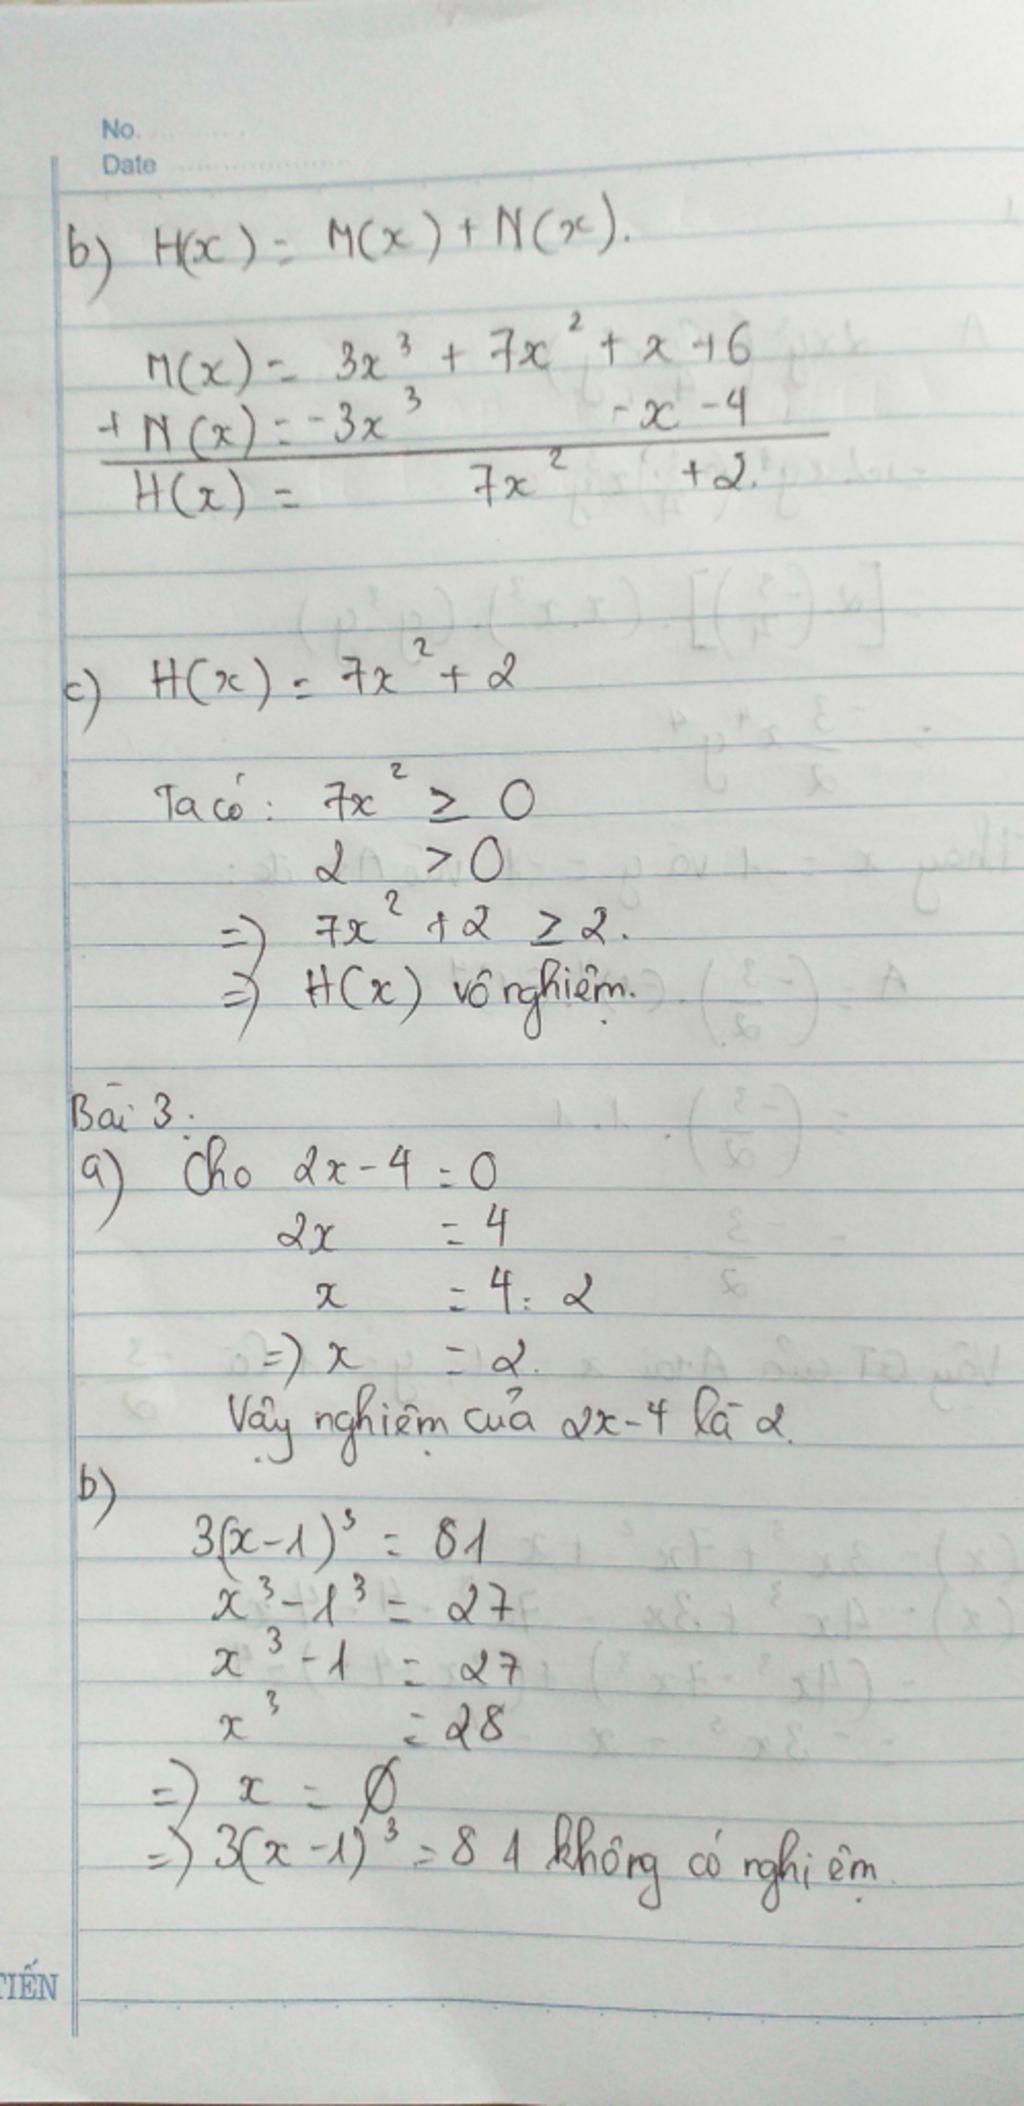 No.
Date
b) H(x) = M(x) + N(x).
M(x) = 3x³ + 7x² + x + 6
+ N(x) = -3x³ - x - 4
H(x) = 7x² + 2.
c) H(x) = 7x² + 2
Ta có: 7x² ≥ 0
2 > 0
=> 7x² + 2 ≥ 2.
=> H(x) vô nghiệm.
Bài 3:
a) Cho 2x - 4 = 0
2x = 4
x = 4 : 2
=> x = 2.
Vậy nghiệm của 2x - 4 là 2.
b)
3(x - 1)³ = 81
x³ - 1³ = 27
x³ - 1 = 27
x³ = 28
=> x = Ø
=> 3(x - 1)³ = 81 không có nghiệm.
TIẾN